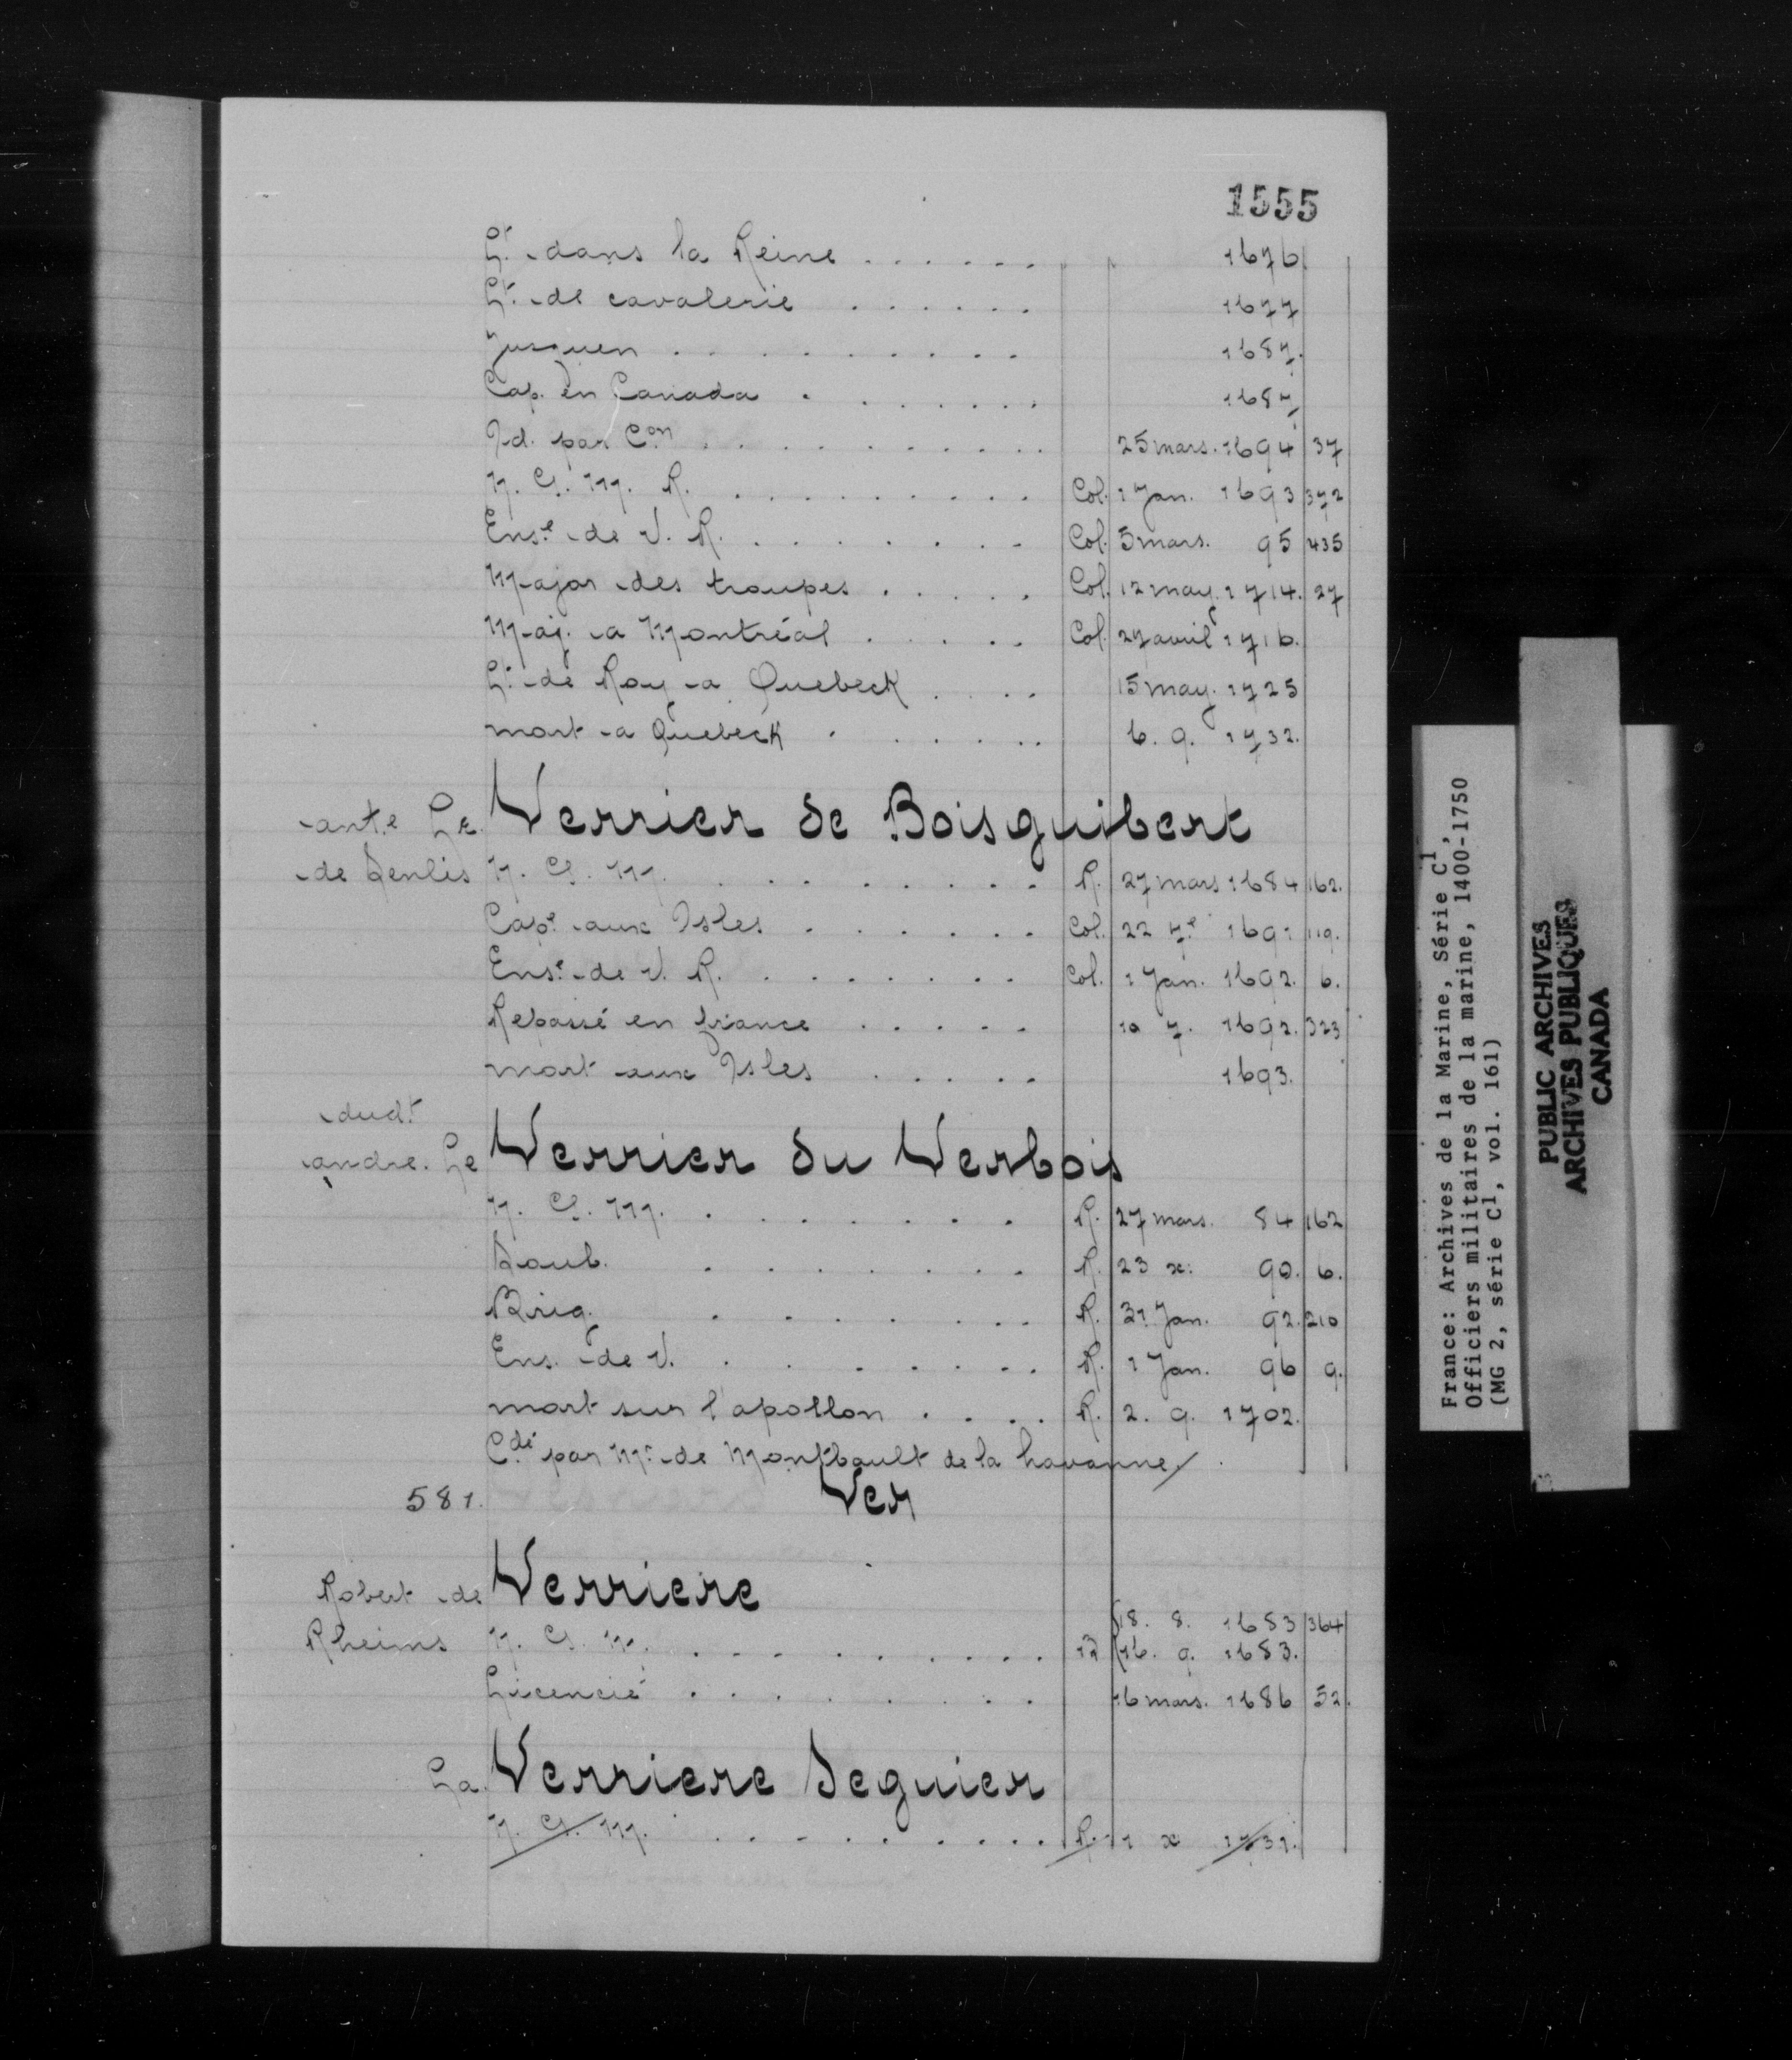 1555
Lt. dans la Reine . . . . . . 1676
Lt. de cavalerie . . . . . . 1677
Jusquen . . . . . . . . . 1687.
Cap. en Canada . . . . . . . 1687
Id. par Con . . . . . . . . . . 25 mars. 1694 37
G. M. R. . . . . . . . . . Col. 1 Jan. 1693 372
Ense de V. R. . . . . . . . . Col. 5 mars. 95 435
Major des troupes . . . . . Col. 12 may. 1714. 27
Maj. a Montréal . . . . . Col. 27 avril 1716.
Lt. de Roy a Quebeck . . . . 15 may. 1725
mort a Quebeck . . . . . . 6. 9. 1732.
ant.e Le Verrier de Boisguibert
de Senlis G. M. . . . . . . . . . R. 27 mars 1684 162.
Cape aux Isles . . . . . . . Col. 22 7e 1691 119.
Ense de V. R. . . . . . . . Col. 1 Jan. 1692. 6.
Repassé en france . . . . . 10 7. 1692. 323
mort aux Isles . . . . . 1693.
dudt
andre. Le Verrier du Verbois
G. M. . . . . . . . . R. 27 mars. 84 162
Soub. . . . . . . . . R. 23 x: 90. 6.
Brig. . . . . . . . . R. 31 Jan. 92. 210
Ens. de V. . . . . . . . . R. 1 Jan. 96 9.
mort sur l'apollon . . . . R. 2. 9. 1702.
Cdé par Mr. de Montbault de la havanne
581. Ver
Robert de Verriere
18. 8. 1683 364
Rheims G. M. . . . . . . . . . 16. 9. 1683.
Licencié . . . . . . . . 16 mars. 1686 52.
La Verriere Seguier
G. M. . . . . . . . . . R. 1 x 1731.
France: Archives de la Marine, Série C1,
Officiers militaires de la marine, 1400-1750
(MG 2, série C1, vol. 161)
PUBLIC ARCHIVES
ARCHIVES PUBLIQUES
CANADA